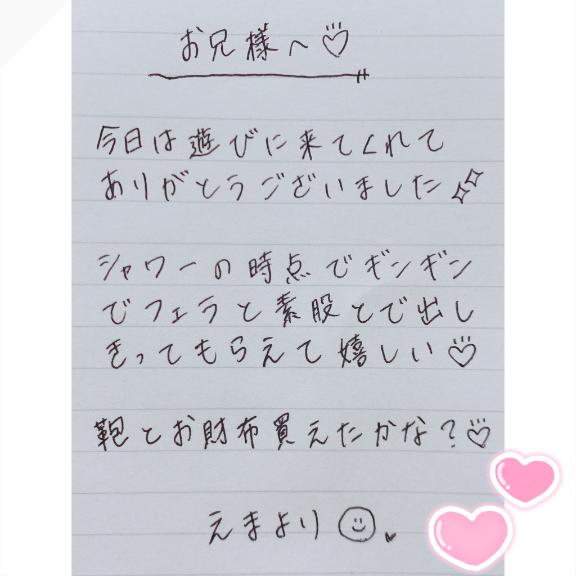 お兄様へ♡
今日は遊びに来てくれて
ありがとうございました
シャワーの時点でギンギン
でフェラと素股とで出し
きってもらえて嬉しい♡
鞄とお財布買えたかな?♡
えまより